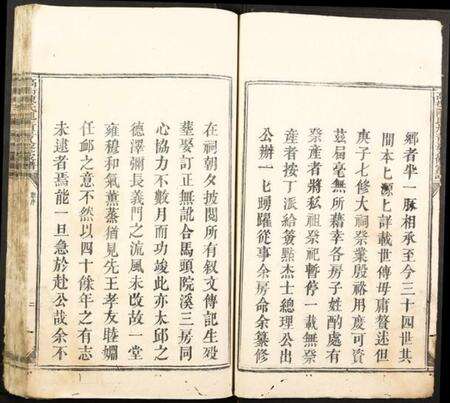 鄉者半一脈相承至今三十四世其
間本七源上詳載世傳毋庸贅述但
庚子七修大祠祭業殷裕用度可資
茲屆毫無所藉幸各房子姓酌處有
祭產者將私祖祭祀暫停一載無祭
產者按丁派給簽點杰士總理公出
公辦一七踴躍從事余房命余纂修
在祠朝夕披閱所有叙文傳記生歿
塟娶訂正無訛合馬頭院溪三房同
心協力不數月而功竣此亦太邱之
德澤彌長義門之流風未改故一堂
雍穆和氣薰蒸猶見先王孝友睦婣
任卹之意不然以四十餘年之有志
未逮者焉能一旦急於赴公哉余不
二